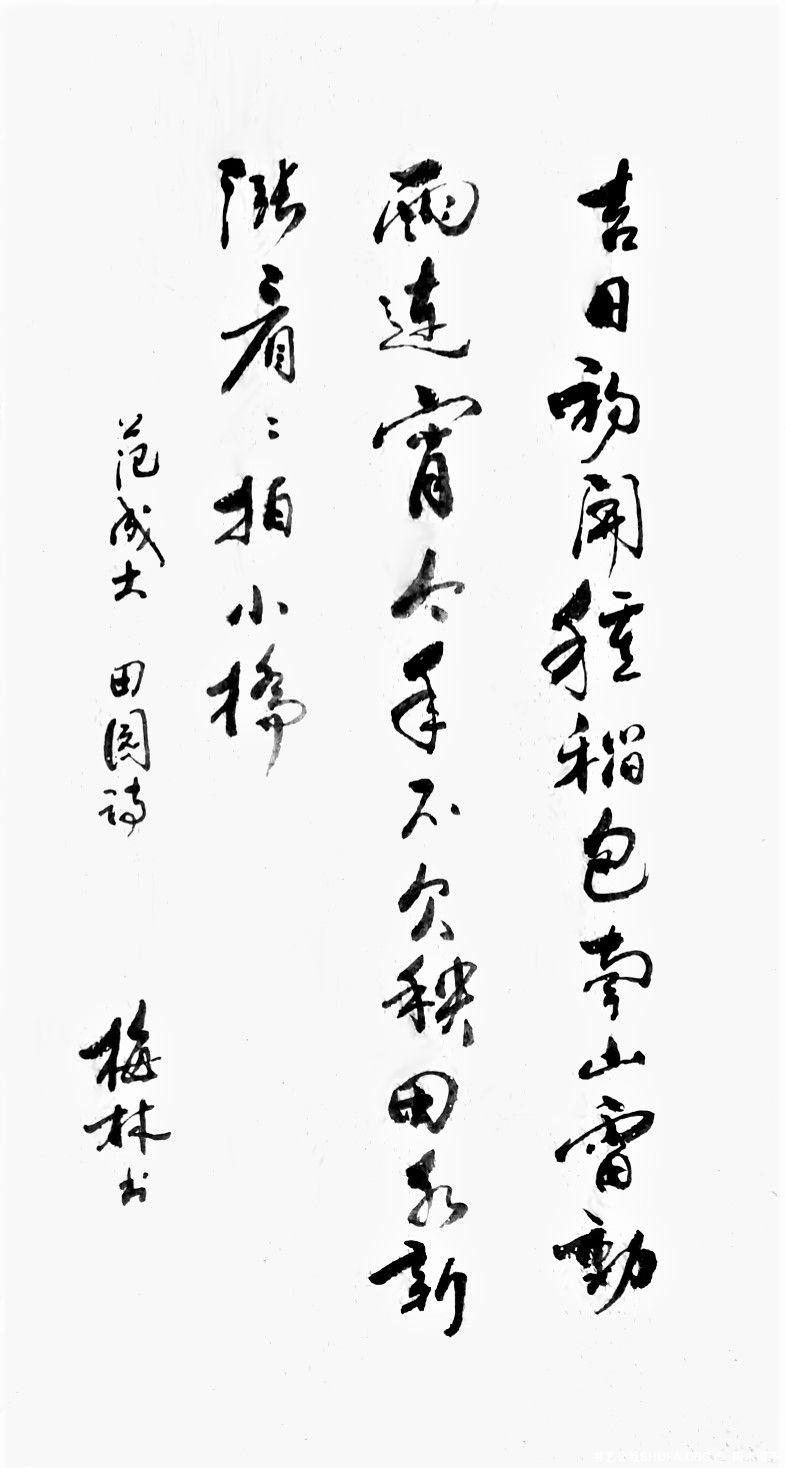 吉日初開種稻包南山雷動
雨連宵今年不欠秧田水新
漲看〻拍小橋
范成大 田園詩
梅林书